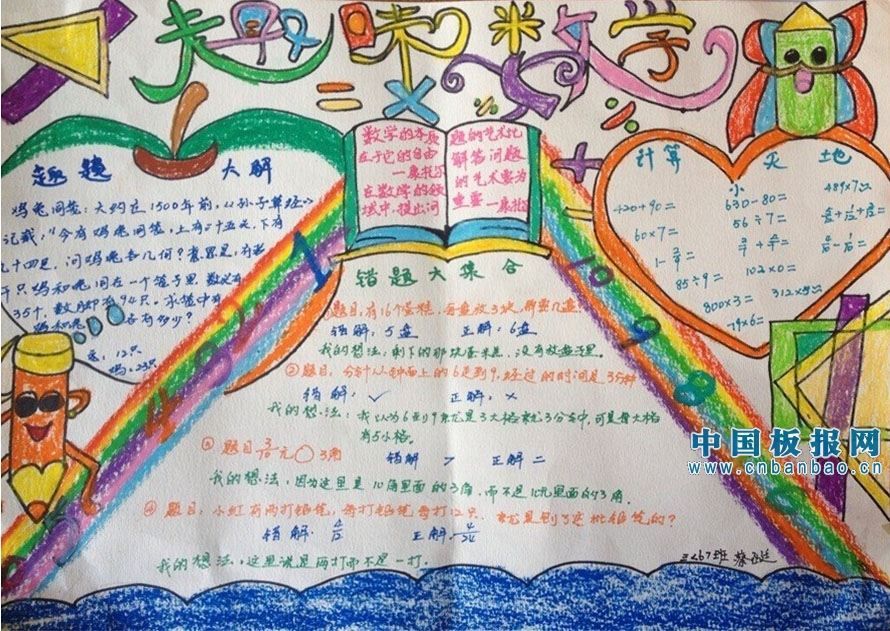 趣味数学
数学的本质
在于它的自由
—康托尔
在数学的领
域中,提出问
题的艺术比
解答问题
的艺术更为
重要
—康托
趣题大解
鸡兔同笼:大约在1500年前,《孙子算经》
记载,"今有鸡兔同笼,上有三十五头,下有
九十四足,问鸡兔各几何?意思是,有若
干只鸡和兔同在一个笼子里,数头有
35个,数脚有94只,求笼中有
鸡和兔各有多少?
兔:12只
鸡:23只
计算小天地
420+90=
60×7=
85÷9=
630-80=
56÷7=
102×0=
800×3=
79×6=
489×7≈
312×5≈
错题大集合
①题目,有16个蛋糕,每盘放3块,那要几盘?
错解:5盘 正解:6盘
我的想法:剩下的那块蛋糕,没有放盘子里。
②题目,分针从钟面上的6走到9,经过的时间是35秒
错解:√ 正解:×
我的想法:我以为6到9就是3大格就3分钟,可是每大格
有5小格。
③题目 3/10元○3角 错解 > 正解 =
我的想法,因为这里是10角里面的3角,而不是10元里面的3角。
④题目,小红有两打铅笔,每打铅笔每打12只,
错解: 正解:
我的想法,这里说是两打而不是一打。
1 2 3 4
10 9 8
三〈6〉班 蔡
中国板报网
www.cnbanbao.cn